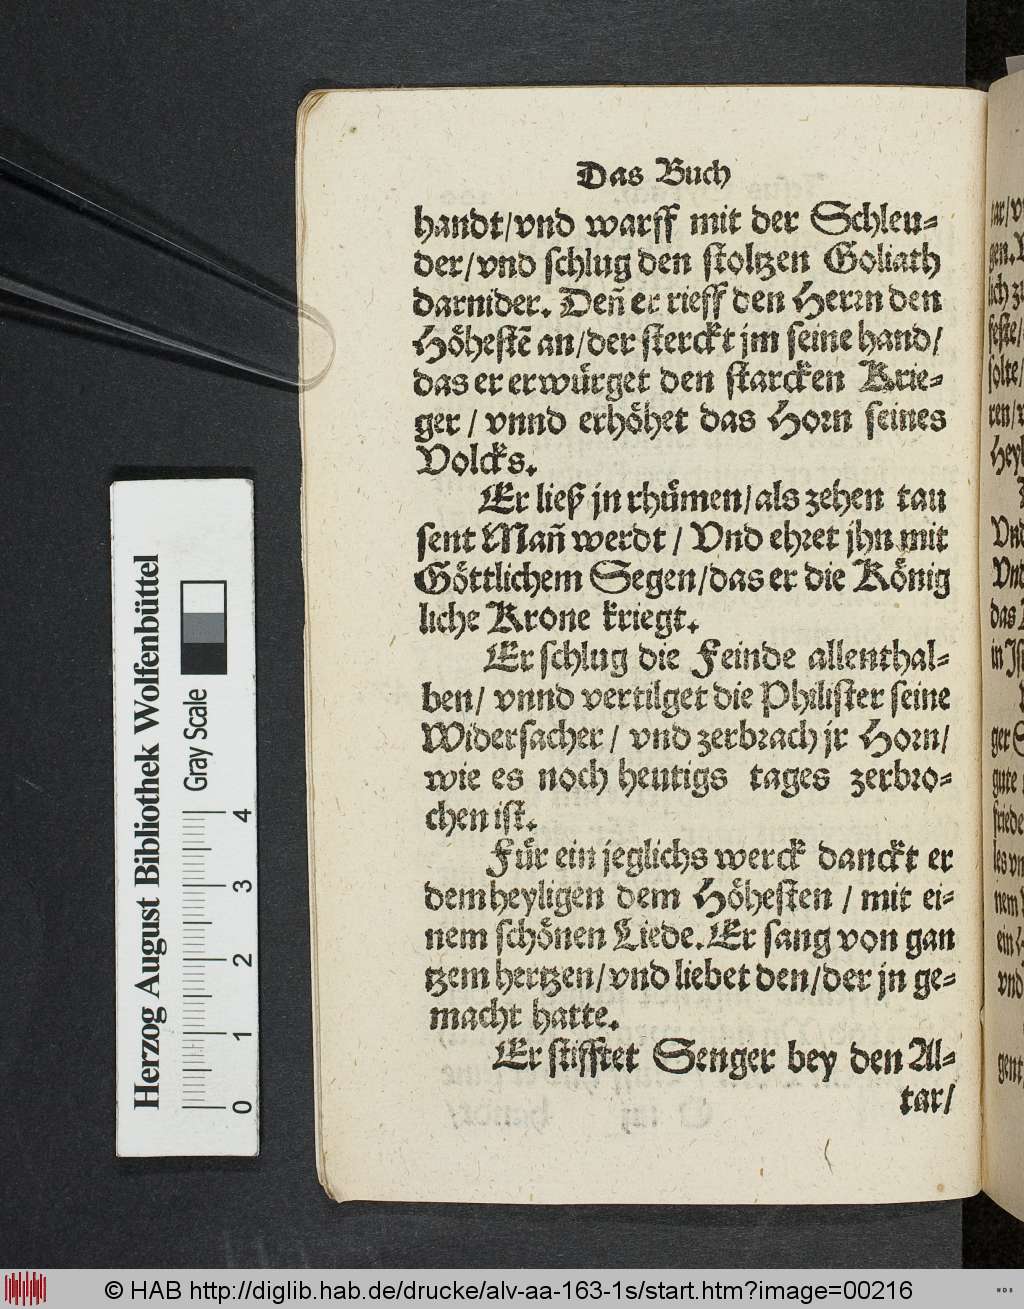 Das Buch
handt/vnd warff mit der Schleu-
der/vnd schlug den stoltzen Goliath
darnider. Den̄ er rieff den Herrn den
Höhestē an/der sterckt jm seine hand/
das er erwürget den starcken Krie-
ger / vnnd erhöhet das Horn seines
Volcks.
Er ließ jn rhümen/als zehen tau
sent Man̄ werdt / Vnd ehret jhn mit
Göttlichem Segen/das er die König
liche Krone kriegt.
Er schlug die Feinde allenthal-
ben/ vnnd vertilget die Philister seine
Widersacher / vnd zerbrach jr Horn/
wie es noch heutigs tages zerbro-
chen ist.
Für ein jeglichs werck danckt er
dem heyligen dem Höhesten / mit ei-
nem schönen Liede. Er sang von gan
tzem hertzen/vnd liebet den/der jn ge-
macht hatte.
Er stifftet Senger bey den Al-
tar/
Herzog August Bibliothek Wolfenbüttel
Gray Scale
0 1 2 3 4
© HAB http://diglib.hab.de/drucke/alv-aa-163-1s/start.htm?image=00216